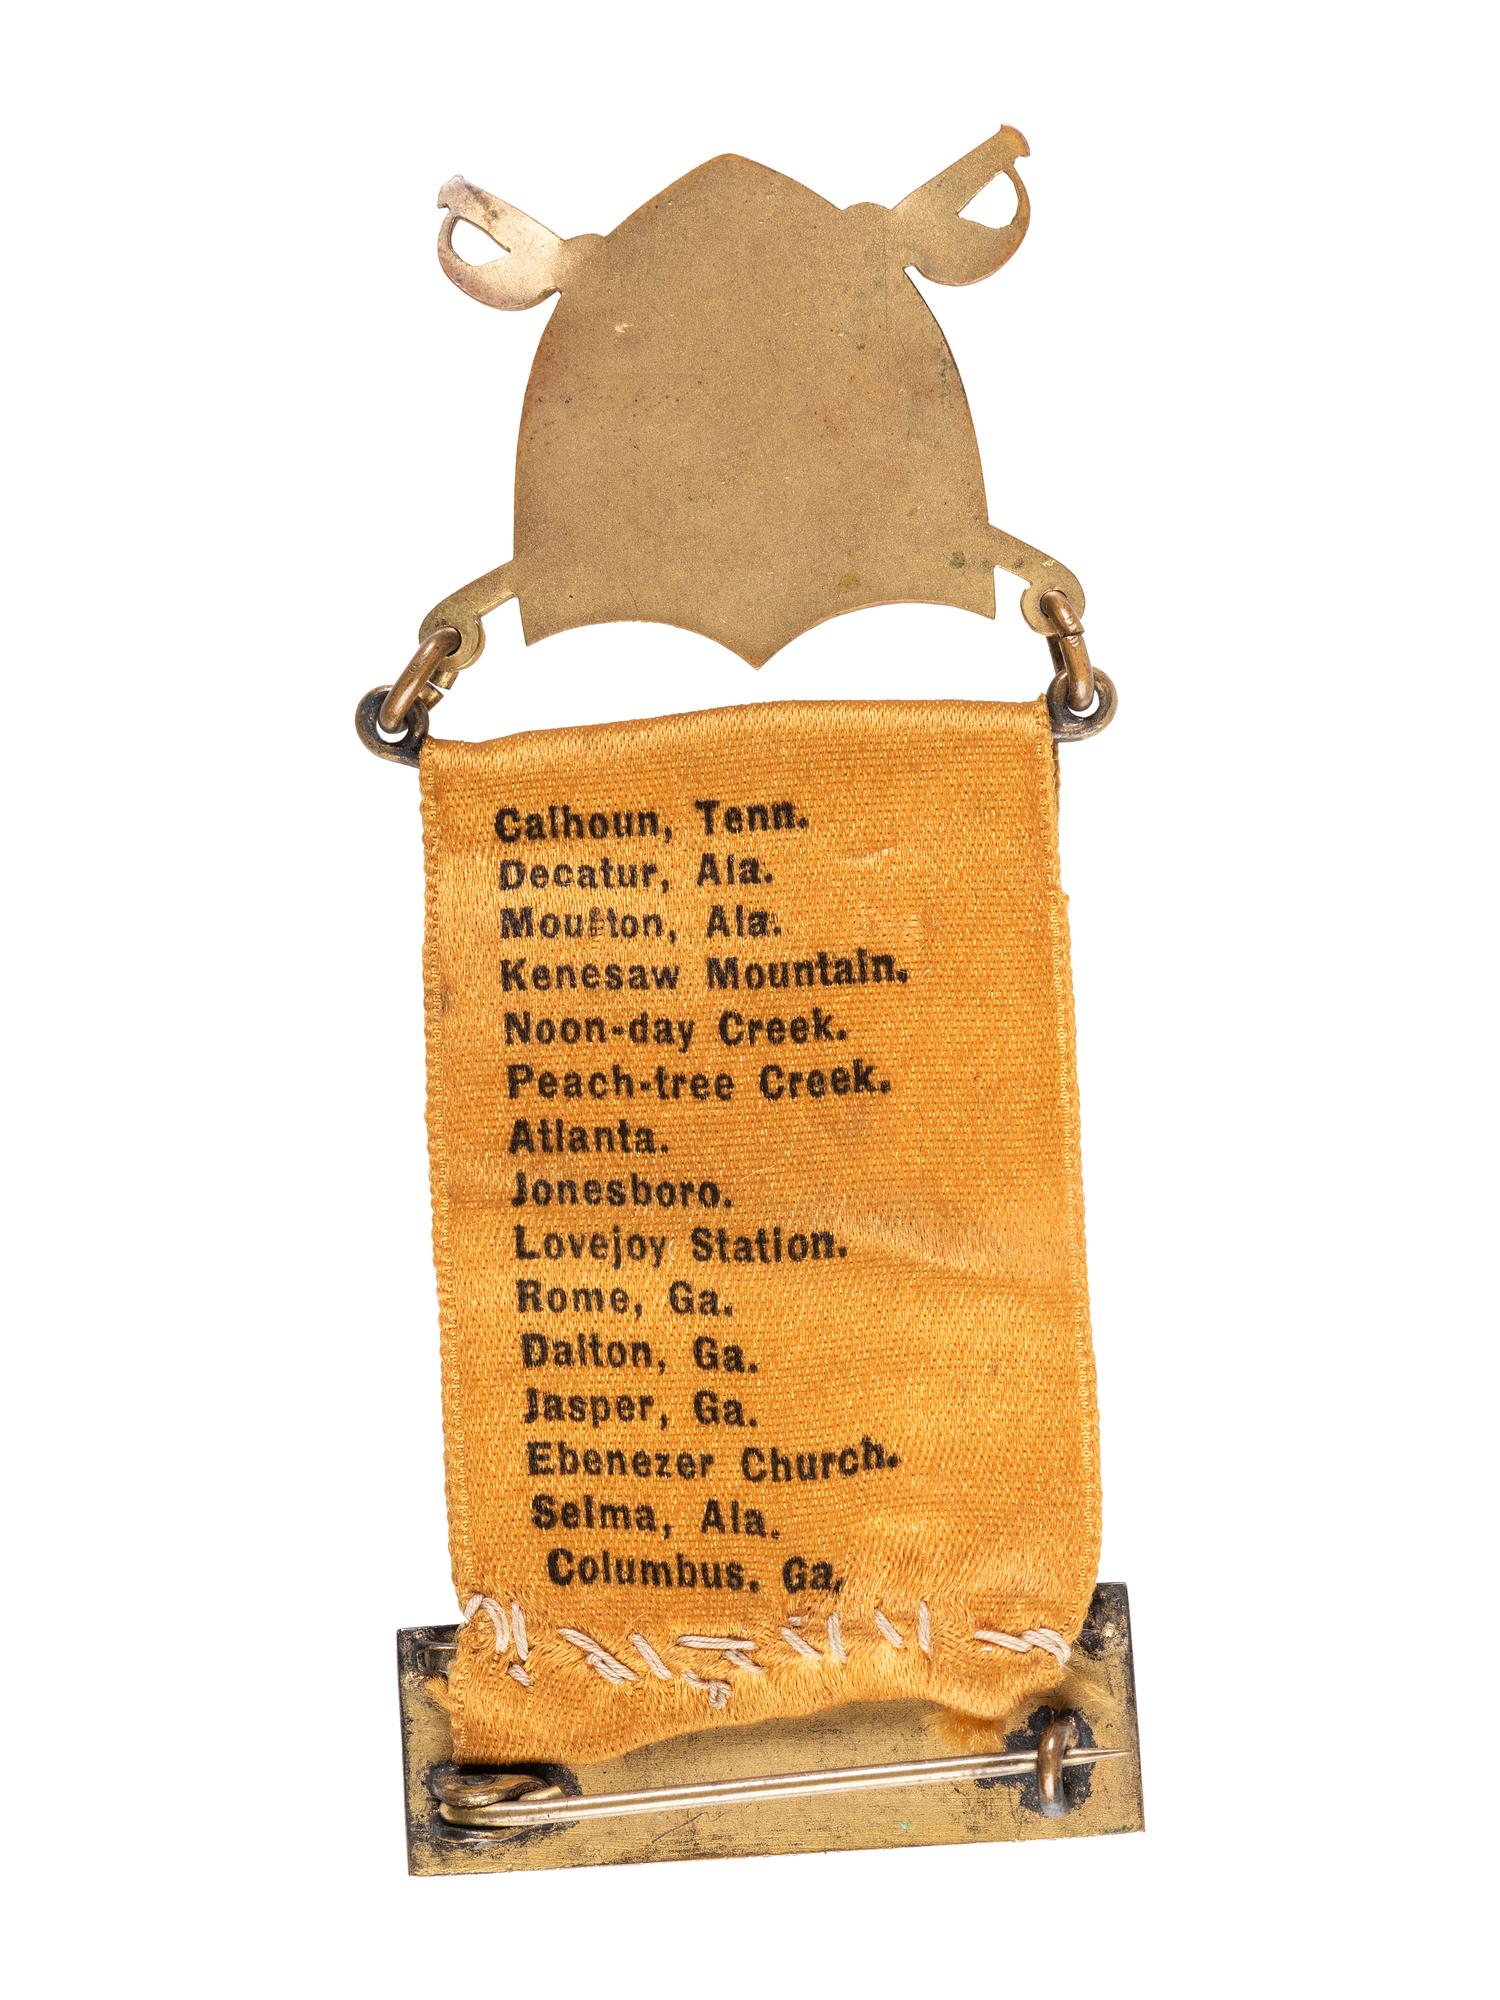 Calhoun, Tenn.
Decatur, Ala.
Moulton, Ala.
Kenesaw Mountain.
Noon-day Creek.
Peach-tree Creek.
Atlanta.
Jonesboro.
Lovejoy Station.
Rome, Ga.
Dalton, Ga.
Jasper, Ga.
Ebenezer Church.
Selma, Ala.
Columbus, Ga.